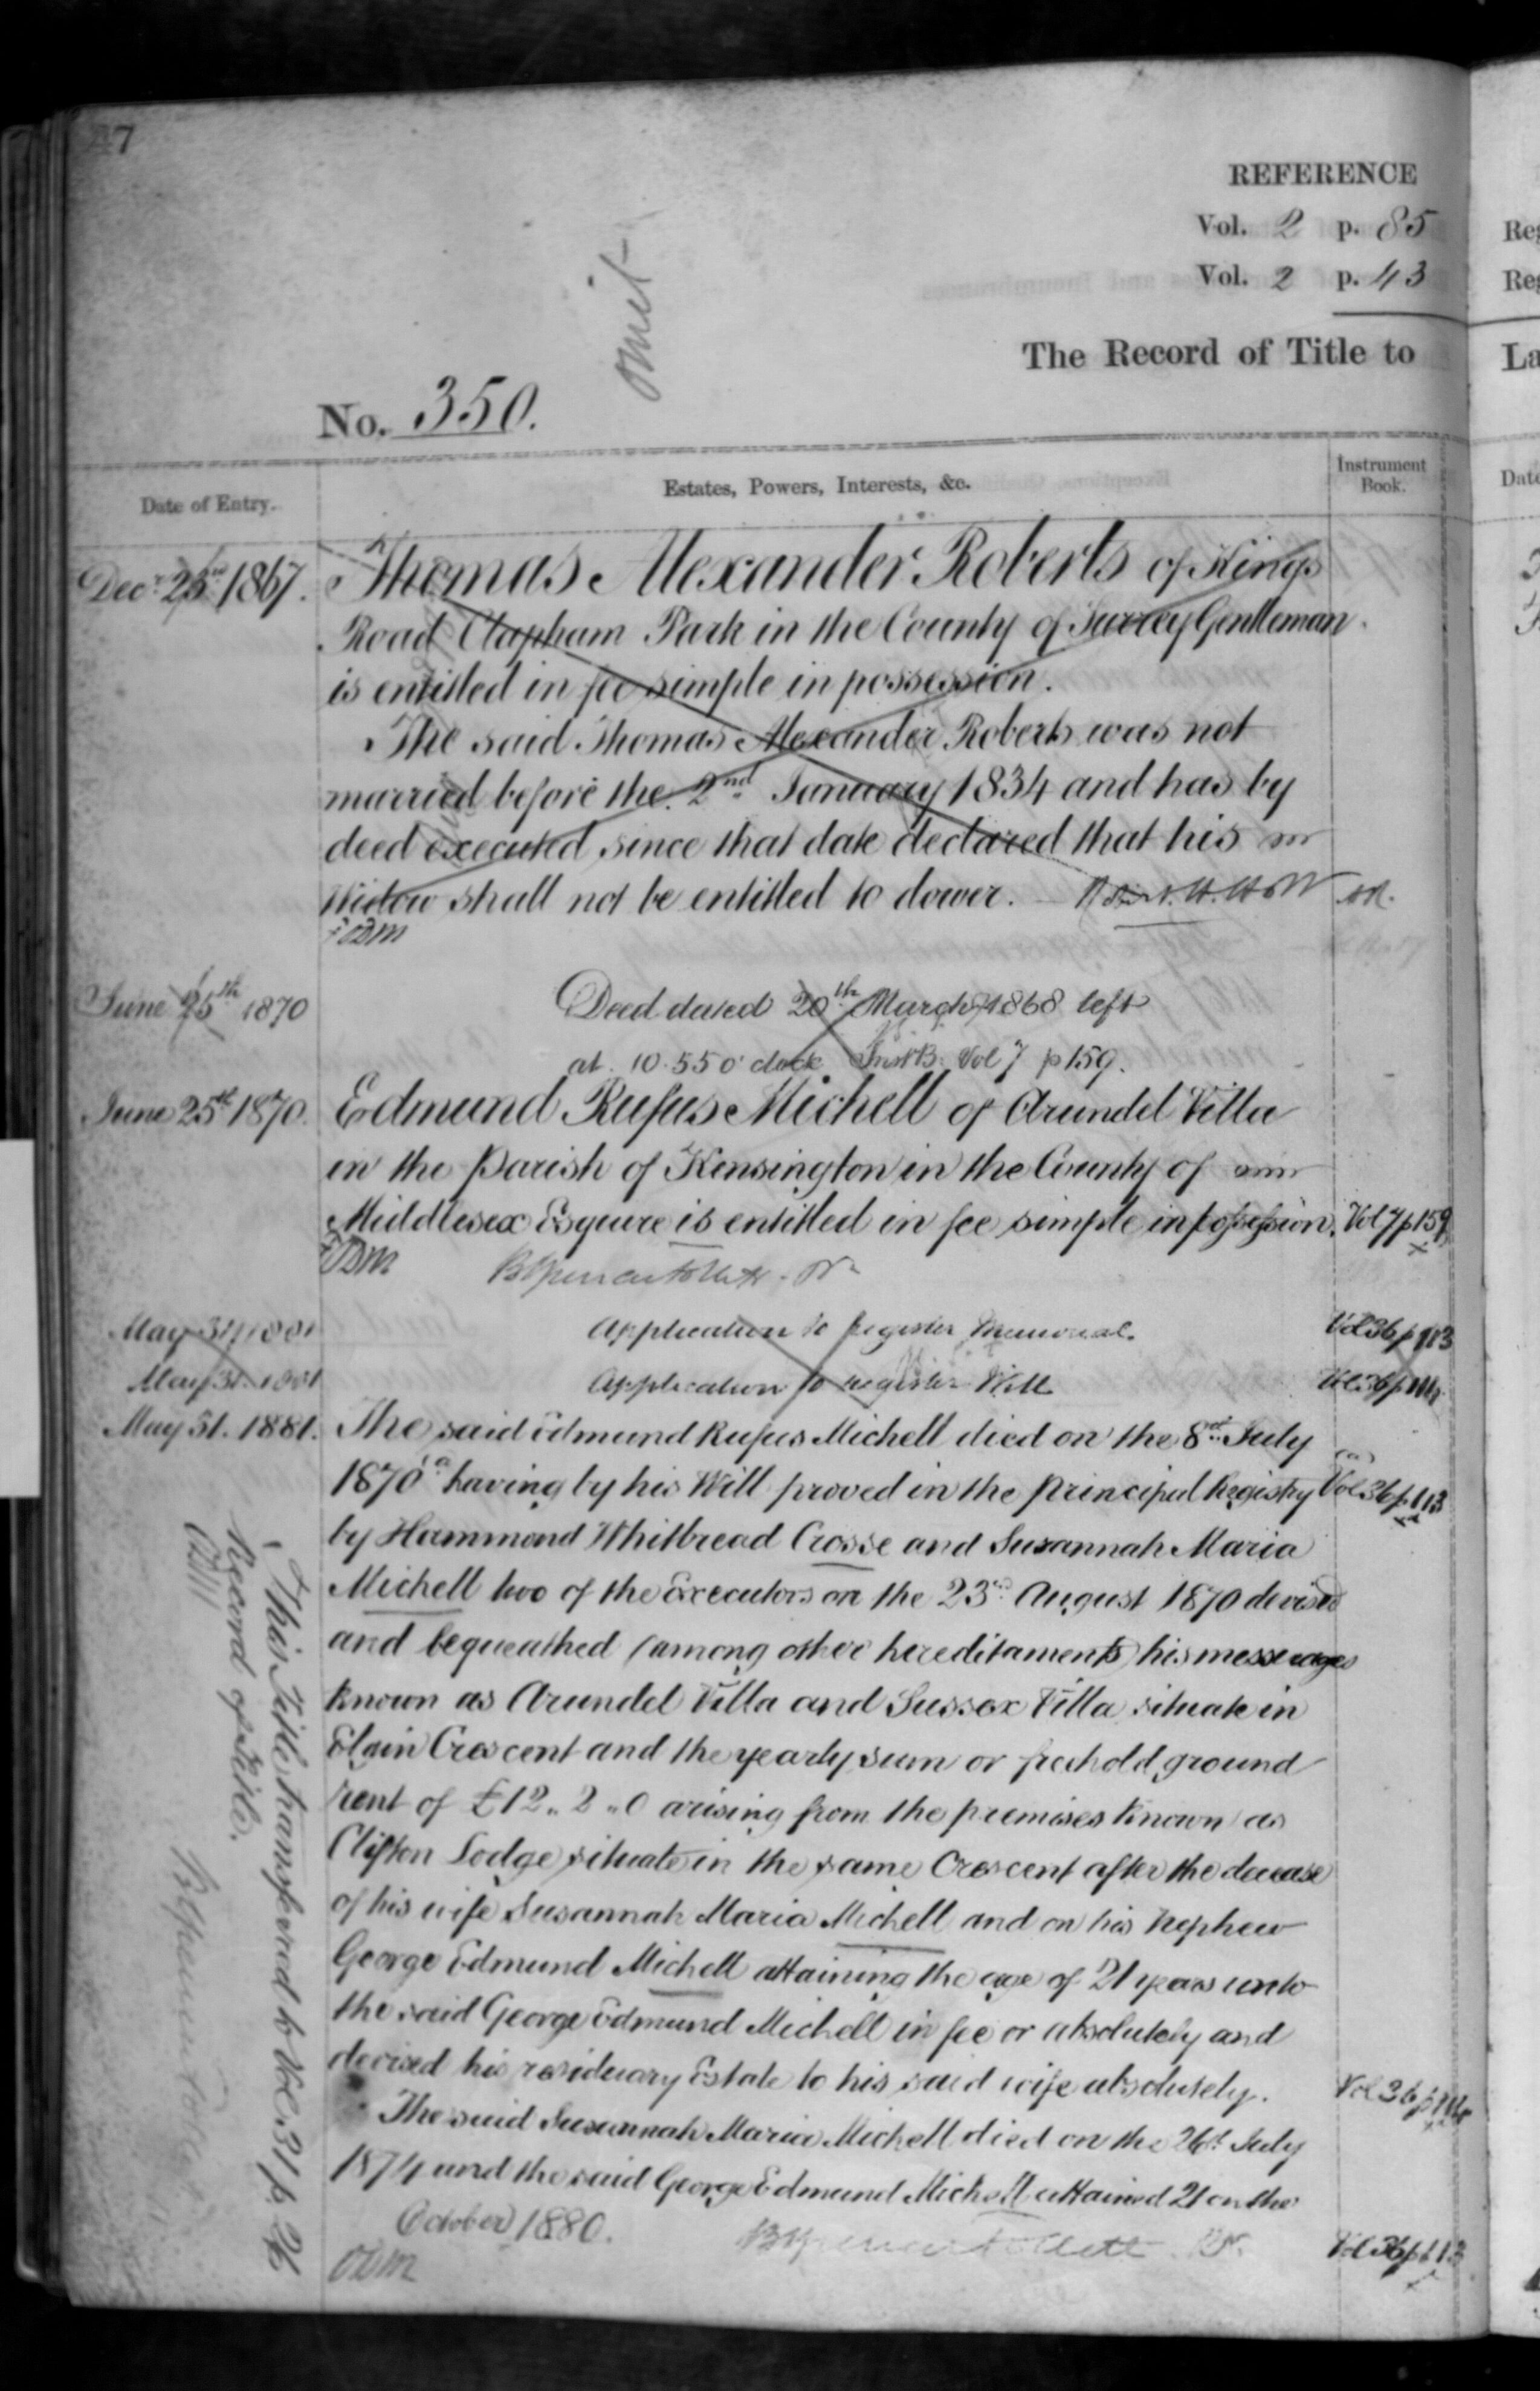 REFERENCE
Vol. 2 p. 85
Vol. 2 p. 43
omit
The Record of Title to
No. 350.
Date of Entry.
Estates, Powers, Interests, &c.
Instrument Book.
Decr 1867.
Thomas Alexander Roberts of Kings
Road Clapham Park in the County of Surrey Gentleman
is entitled in fee simple in possession.
The said Thomas Alexander Roberts was not
married before the 2nd January 1834 and has by
deed executed since that date declared that his
Widow shall not be entitled to dower.
June 25th 1870
Deed dated 20th March 1868 left
at 10.55 o'clock Inst B. Vol 7 p 159.
June 25th 1870.
Edmund Rufus Michell of Arundel Villa
in the Parish of Kensington in the County of
Middlesex Esquire is entitled in fee simple in possession. Vol 7 p 159
May 31 1881
Application to register Memorial. Vol 36 p 113
May 31 1881
Application to register Will Vol 36 p 114
May 31. 1881.
The said Edmund Rufus Michell died on the 8th July
1870 having by his Will proved in the Principal Registry Vol 36 p 113
by Hammond Whitbread Crosse and Susannah Maria
Michell two of the Executors on the 23rd August 1870 devised
and bequeathed (among other hereditaments) his messuages
known as Arundel Villa and Sussex Villa situate in
Elgin Crescent and the yearly sum or freehold ground
rent of £12 „ 2 „ 0 arising from the premises known as
Clifton Lodge situate in the same Crescent after the decease
of his wife Susannah Maria Michell and on his Nephew
George Edmund Michell attaining the age of 21 years unto
the said George Edmund Michell in fee or absolutely and
devised his residuary Estate to his said wife absolutely. Vol 36 p 114
The said Susannah Maria Michell died on the 26th July
1874 and the said George Edmund Michell attained 21 on the
October 1880.
Vol 36 p 113
This Title transferred to Vol. 31 p. 26
Record of Title.